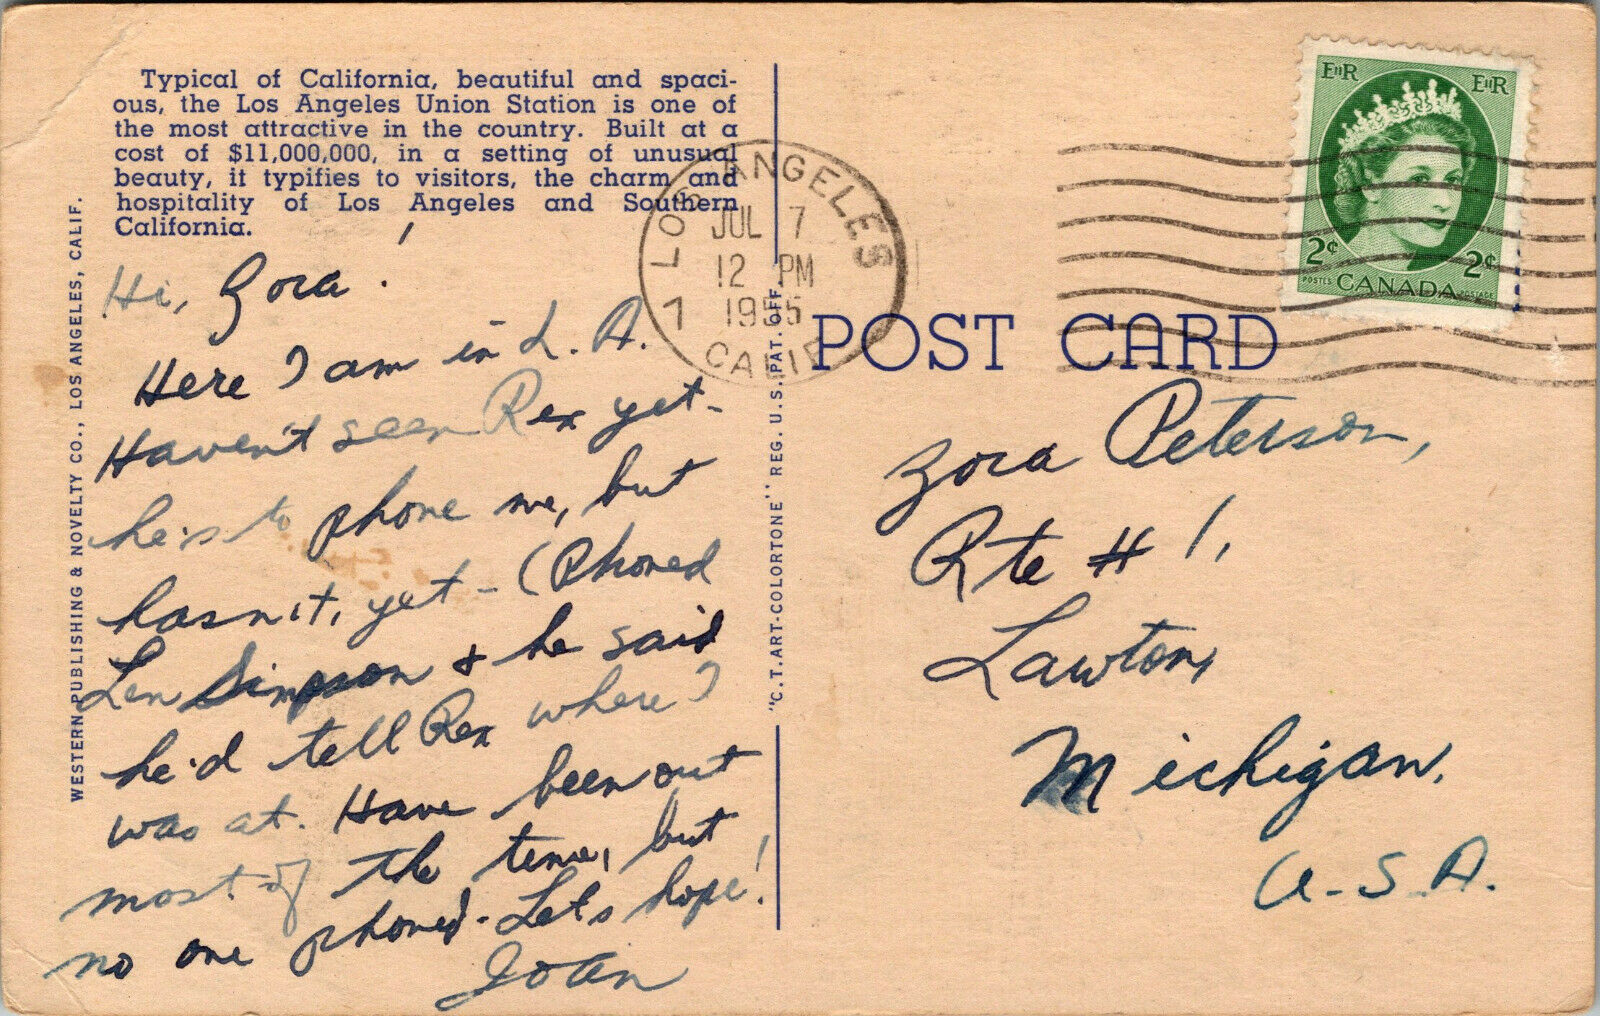 Typical of California, beautiful and spaci-
ous, the Los Angeles Union Station is one of
the most attractive in the country. Built at a
cost of $11,000,000, in a setting of unusual
beauty, it typifies to visitors, the charm and
hospitality of Los Angeles and Southern
California.
Hi, Zora!
Here I am in L. A.
Haven't seen Rex yet -
he's to phone me, but
hasn't, yet - (Phoned
Len Simpson & he said
he'd tell Rex where I
was at. Have been out
most of the time, but
no one phoned - Let's hope!
Joan
WESTERN PUBLISHING & NOVELTY CO., LOS ANGELES, CALIF.
"C.T. ART-COLORTONE" REG. U.S. PAT. OFF.
LOS ANGELES
JUL 7
12 PM
1955
1
CALIF
POST CARD
EIIR EIIR
2¢ 2¢
POSTES CANADA POSTAGE
Zora Peterson,
Rte # 1,
Lawton,
Michigan.
U-S.A.